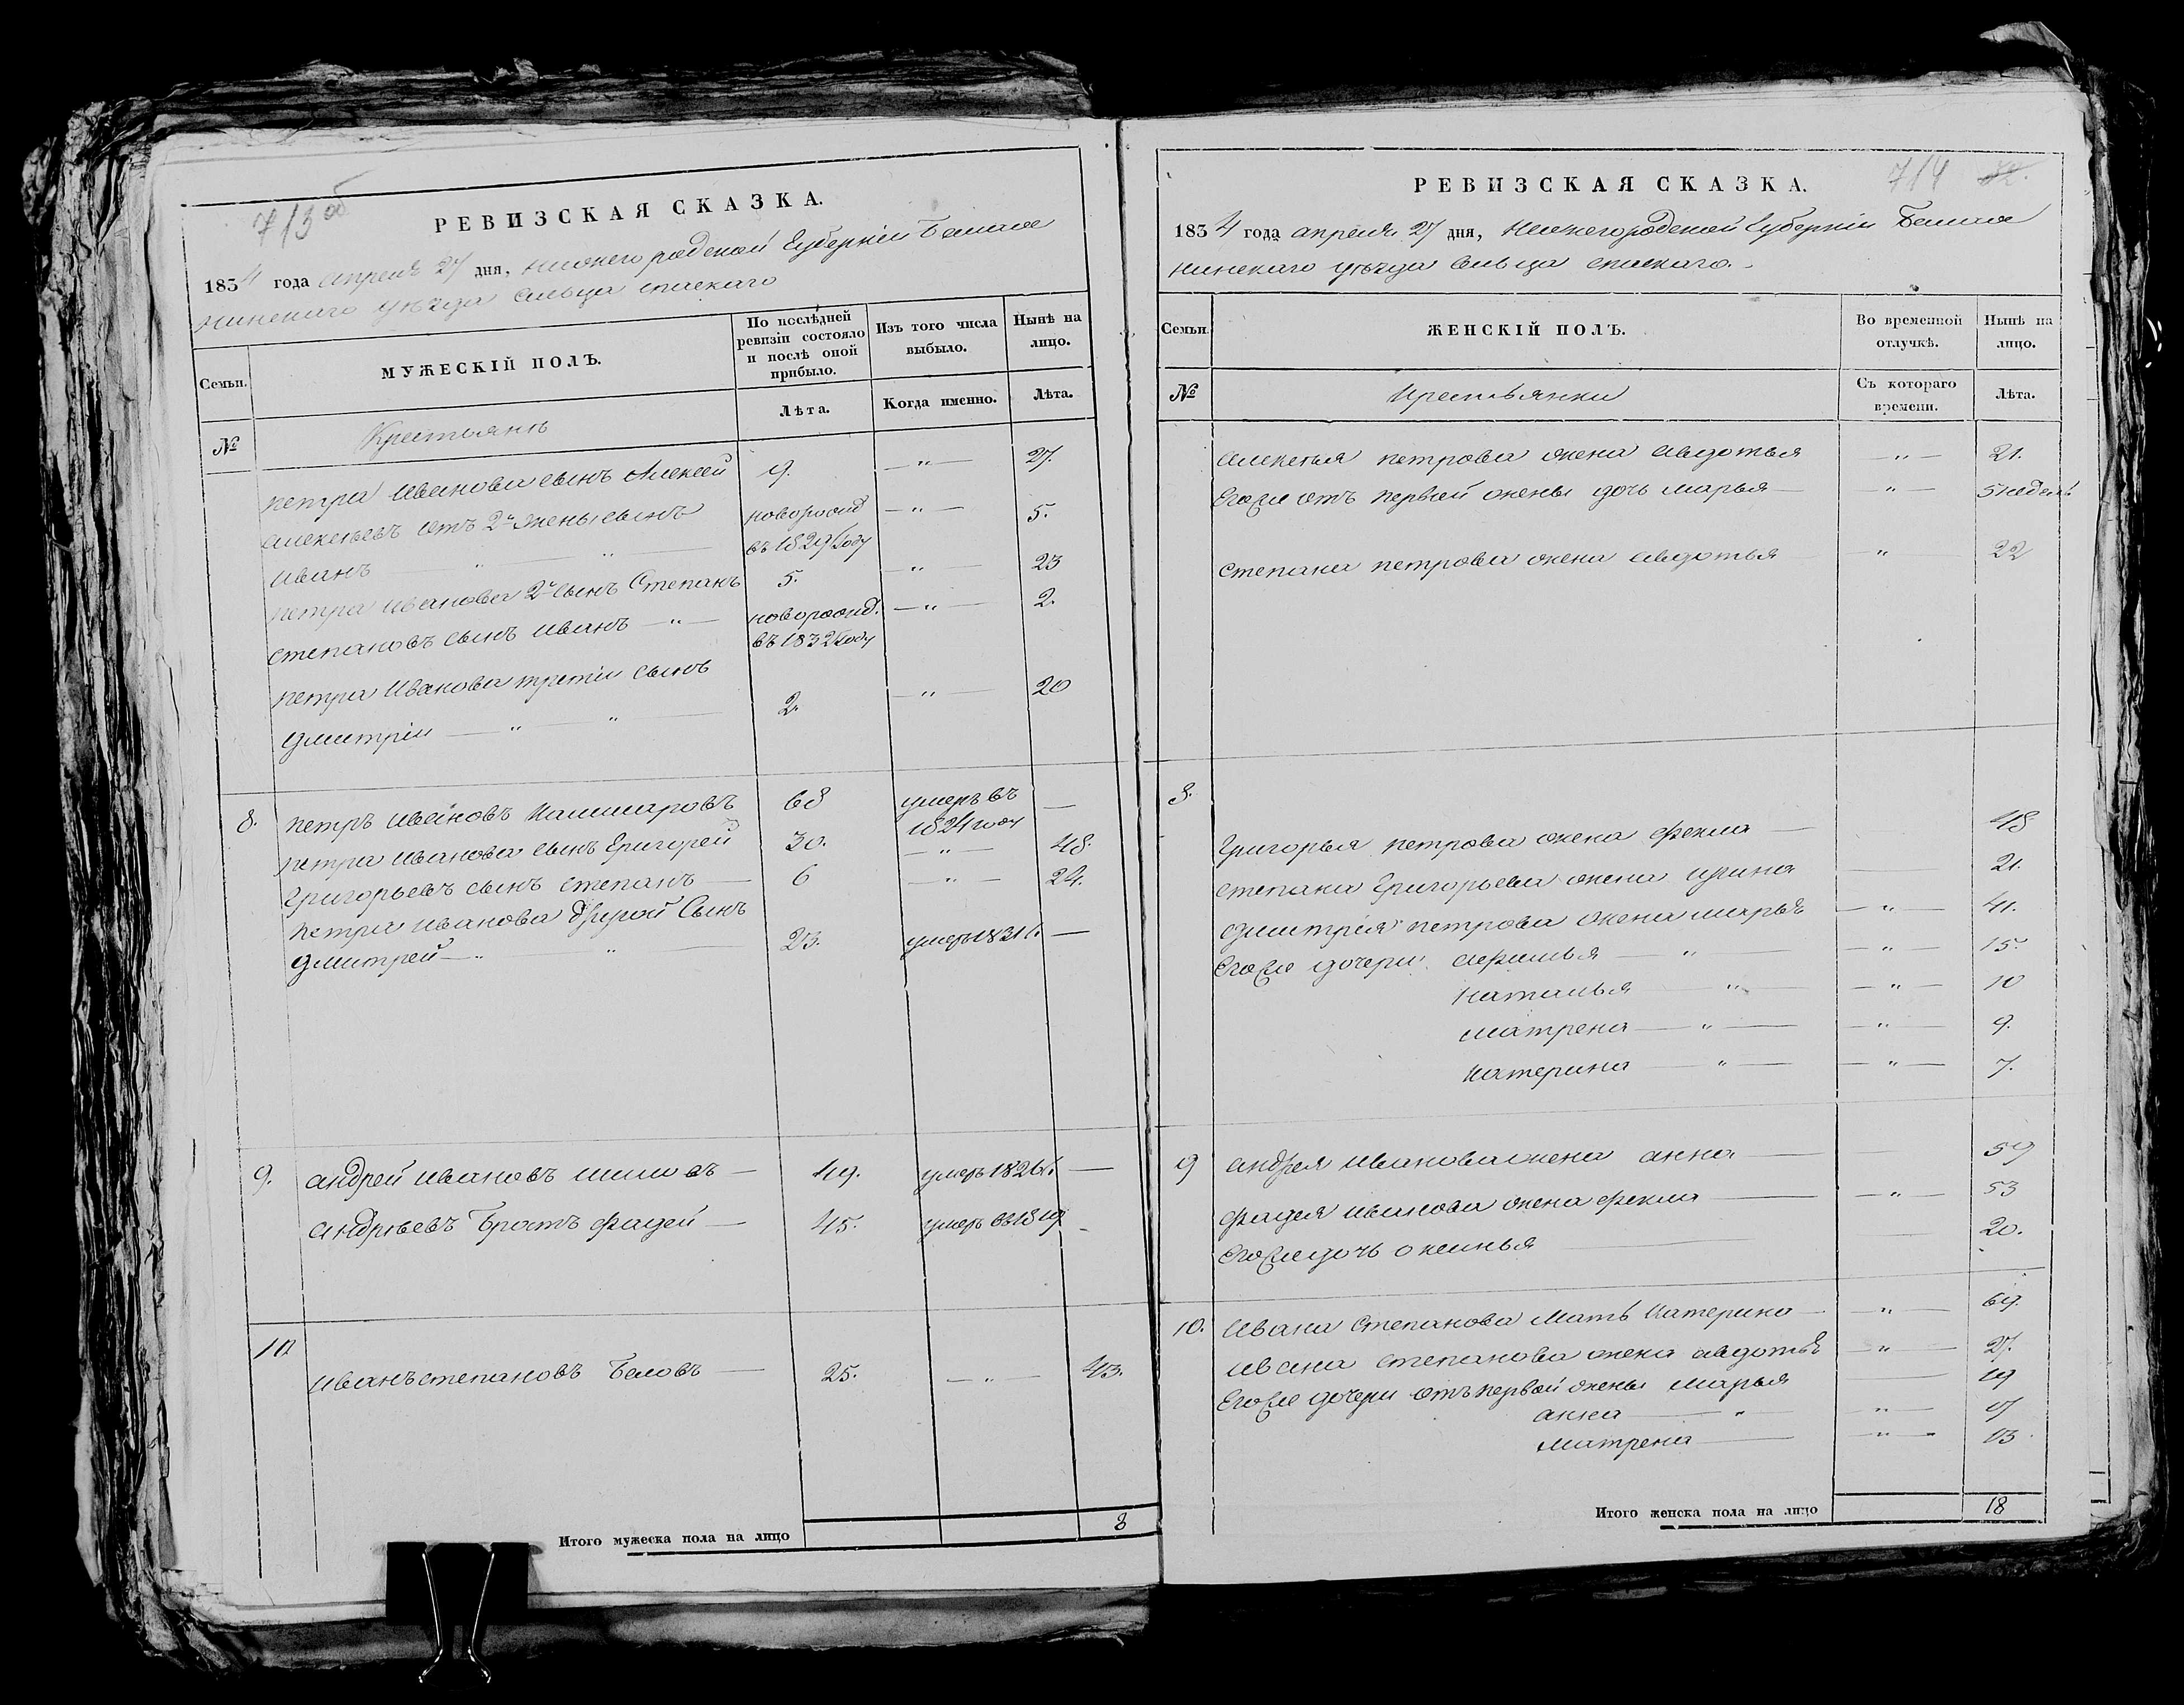 713 об
РЕВИЗСКАЯ СКАЗКА.
1834 года апреля 27 дня, нижегородской Губернiи Балах
нинскаго уѣзда сельца спаскаго
Семьи.
МУЖЕСКІЙ ПОЛЪ.
По послѣдней ревизіи состояло и послѣ оной прибыло.
Изъ того числа выбыло.
Нынѣ на лицо.
№
Крестьянъ
Лѣта.
Когда именно.
Лѣта.
петра Иванова сынъ Алексей 9. —〃— 27.
алексѣевъ отъ 2й жены сынъ новорожд —〃— 5.
иванъ —〃— въ 1829 году
петра иванова 2й сынъ Степанъ 5. —〃— 23
степановъ сынъ иванъ —〃— новорожд. —〃— 2.
въ 1832 году
петра Иванова третiи сынъ
дмитрiи —〃—〃— 2. —〃— 20
8. петръ ивановъ 68 умеръ въ —
1824 году
петра иванова сынъ Григорей 30. —〃— 48.
Григорьевъ сынъ степанъ — 6 —〃— 24.
петра иванова другой Сынъ
дмитрей —〃—〃— 23. умеръ 1831 г. —
9. андрей ивановъ — 49. умеръ 1826 г. —
андрѣевъ Братъ фадей — 45. умеръ въ 1819 -
10 иванъ степановъ Беловъ — 25. —〃— 43.
Итого мужеска пола на лицо 8
714
РЕВИЗСКАЯ СКАЗКА.
1834 года апреля 27 дня, Нижегородской Губернiи Балах
нинскаго уѣзда сельца спаскаго.
Семьи.
ЖЕНСКІЙ ПОЛЪ.
Во временной отлучкѣ.
Нынѣ на лицо.
№
Крестьянки
Съ котораго времени.
Лѣта.
алексѣя петрова жена авдотья —〃— 21.
Егоже отъ первой жены дочь марья — 〃— 5 недель
степана петрова жена авдотья —〃— 22
8.
Григорья петрова жена фекла — 48
степана Григорьева жена ирина — 21.
дмитрiя петрова жена марья —〃— 41.
Егоже дочери афимья —〃— —〃— 15.
наталья —〃— —〃— 10
матрена —〃— —〃— 9.
катерина —〃— —〃— 7.
9 андрея иванова жена анна — 59
фадея иванова жена фекла — —〃— 53
Егоже дочь — 20.
10. ивана степанова мать катерина — 〃— 69.
ивана степанова жена авдотья —〃— 27.
Егоже дочери отъ первой жены марья — 19
анна —〃 —〃— 17
матрена — —〃— 13
Итого женска пола на лицо 18